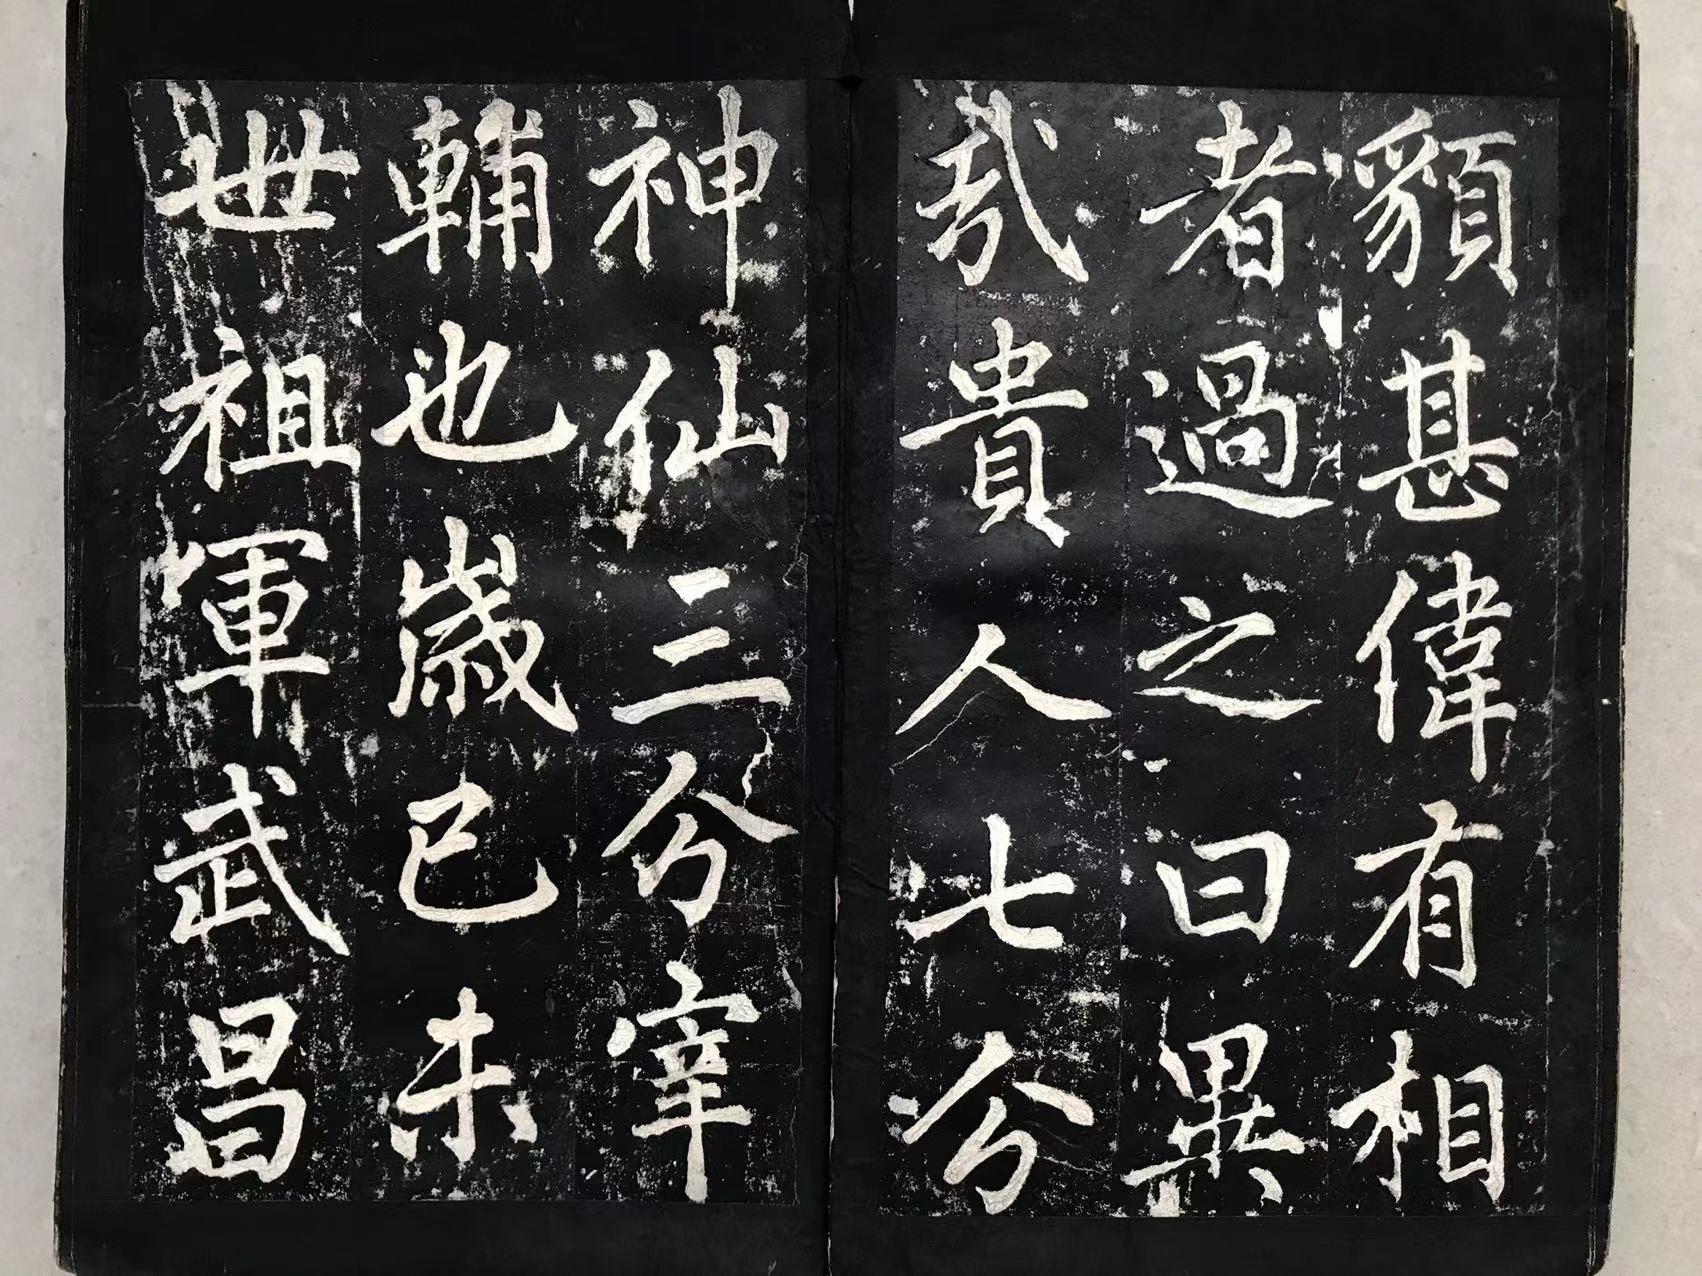 貌甚偉有相
者過之曰異
哉貴人七分
神仙三分宰
輔也歲已未
世祖軍武昌